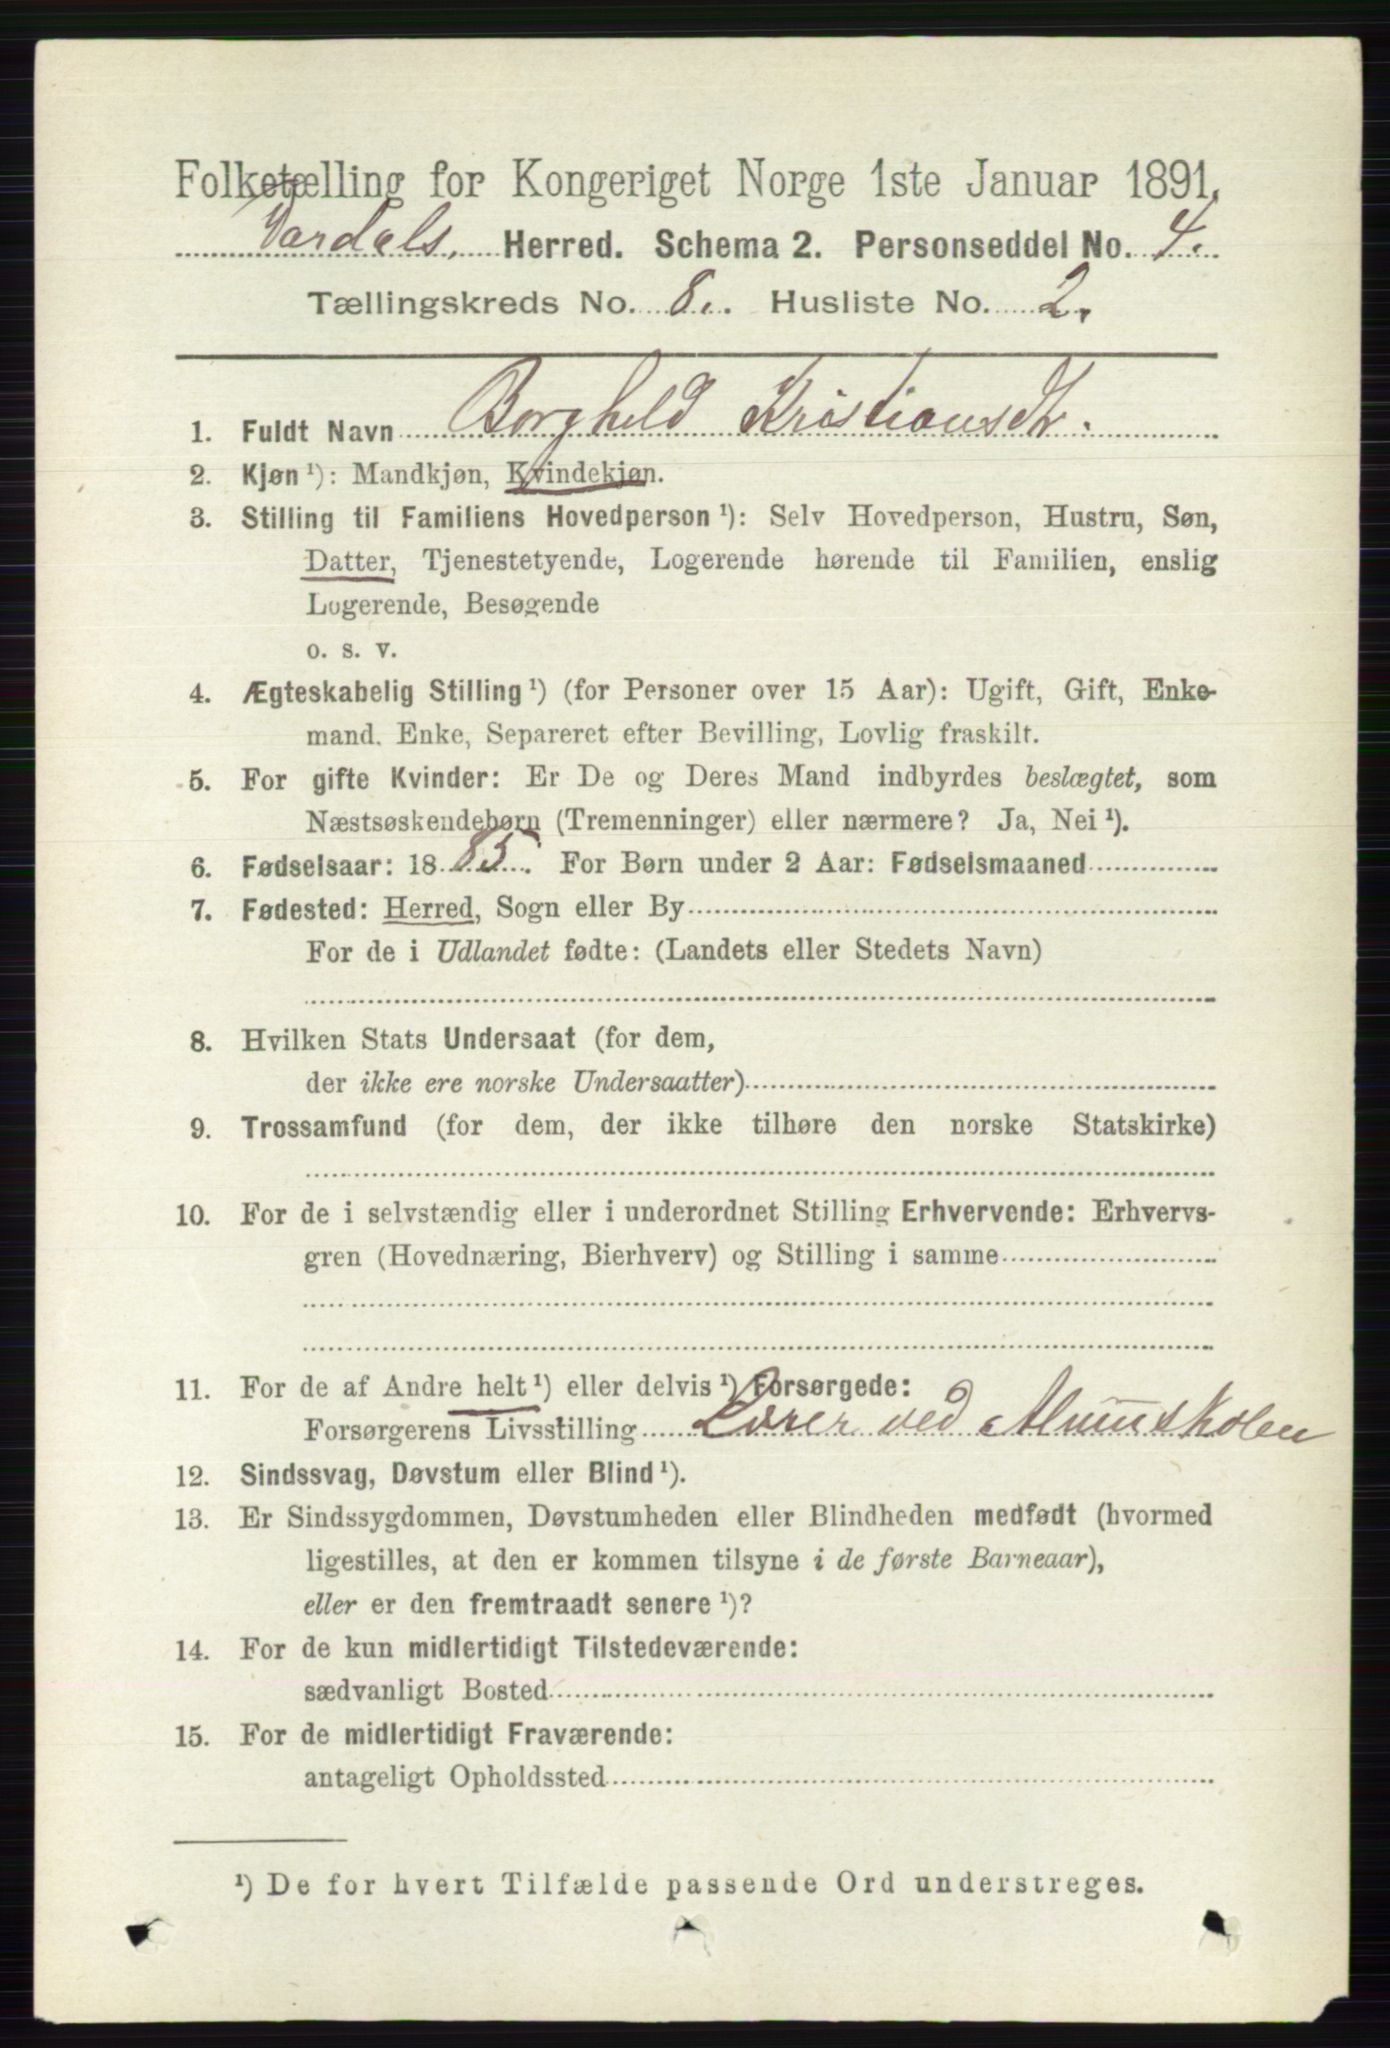 Folketælling for Kongeriget Norge 1ste Januar 1891.
Vardals Herred. Schema 2. Personseddel No. 4.
Tællingskreds No. 8. Husliste No. 2.
1. Fuldt Navn Borghild Kristiansdtr.
2. Kjøn ¹): Mandkjøn, Kvindekjøn.
3. Stilling til Familiens Hovedperson ¹): Selv Hovedperson, Hustru, Søn,
Datter, Tjenestetyende, Logerende hørende til Familien, enslig
Logerende, Besøgende
o. s. v.
4. Ægteskabelig Stilling ¹) (for Personer over 15 Aar): Ugift, Gift, Enke-
mand, Enke, Separeret efter Bevilling, Lovlig fraskilt.
5. For gifte Kvinder: Er De og Deres Mand indbyrdes beslægtet, som
Næstsøskendebørn (Tremenninger) eller nærmere? Ja, Nei ¹).
6. Fødselsaar: 1885. For Børn under 2 Aar: Fødselsmaaned
7. Fødested: Herred, Sogn eller By
For de i Udlandet fødte: (Landets eller Stedets Navn)
8. Hvilken Stats Undersaat (for dem,
der ikke ere norske Undersaatter)
9. Trossamfund (for dem, der ikke tilhøre den norske Statskirke)
10. For de i selvstændig eller i underordnet Stilling Erhvervende: Erhvervs-
gren (Hovednæring, Bierhverv) og Stilling i samme
11. For de af Andre helt ¹) eller delvis ¹) Forsørgede:
Forsørgerens Livsstilling Lærer ved Almuskolen
12. Sindssvag, Døvstum eller Blind ¹).
13. Er Sindssygdommen, Døvstumheden eller Blindheden medfødt (hvormed
ligestilles, at den er kommen tilsyne i de første Barneaar),
eller er den fremtraadt senere ¹)?
14. For de kun midlertidigt Tilstedeværende:
sædvanligt Bosted
15. For de midlertidigt Fraværende:
antageligt Opholdssted
¹) De for hvert Tilfælde passende Ord understreges.